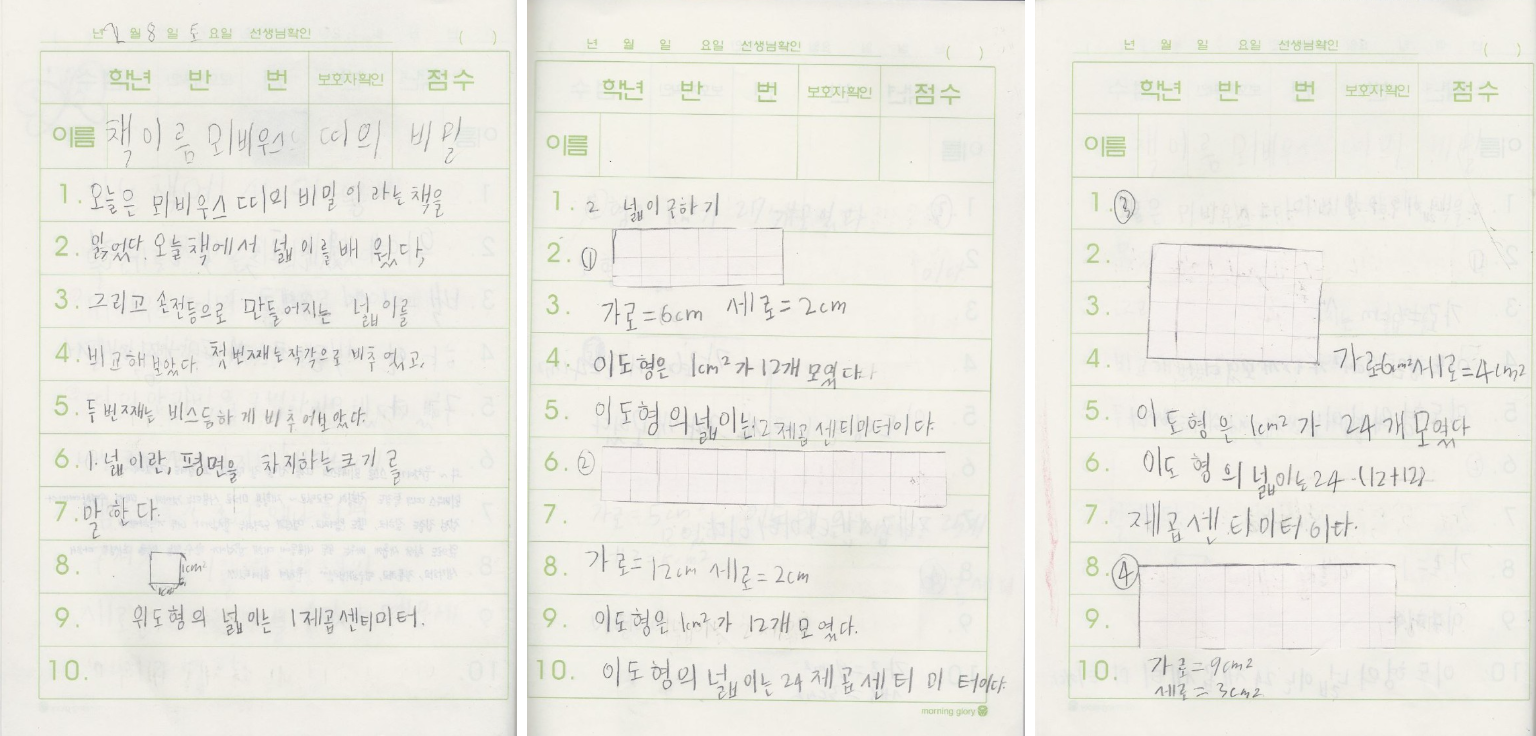 년 2 월 8 일 토 요일 선생님확인 ( )
학년 반 번 보호자확인 점수
이름 책이름 뫼비우스 띠의 비밀
1. 오늘은 뫼비우스 띠의 비밀이라는 책을
2. 읽었다. 오늘 책에서 넓이를 배웠다.
3. 그리고 손전등으로 만들어지는 넓이를
4. 비교해 보았다. 첫번째는 직각으로 비추었고,
5. 두번째는 비스듬하게 비추어보았다.
6. 1. 넓이란, 평면을 차지하는 크기를
7. 말한다.
8. 1cm²
1cm
9. 위도형의 넓이는 1제곱센티미터.
10.
년 월 일 요일 선생님확인 ( )
학년 반 번 보호자확인 점수
이름
1. 2 넓이구하기
2. ①
3. 가로=6cm 세로=2cm
4. 이도형은 1cm²가 12개 모였다.
5. 이도형의 넓이는12제곱센티미터이다
6. ②
7.
8. 가로=12cm 세로=2cm
9. 이도형은 1cm²가 12개 모였다.
10. 이도형의 넓이는 24제곱센티미터이다.
morning glory
년 월 일 요일 선생님확인 ( )
학년 반 번 보호자확인 점수
이름
1. ③
2.
3.
4. 가로=6cm² 세로=4cm²
5. 이도형은 1cm²가 24개 모였다
6. 이도형의 넓이는 24-(12+12)
7. 제곱센티미터이다.
8. ④
9.
10. 가로=9cm²
세로=3cm²